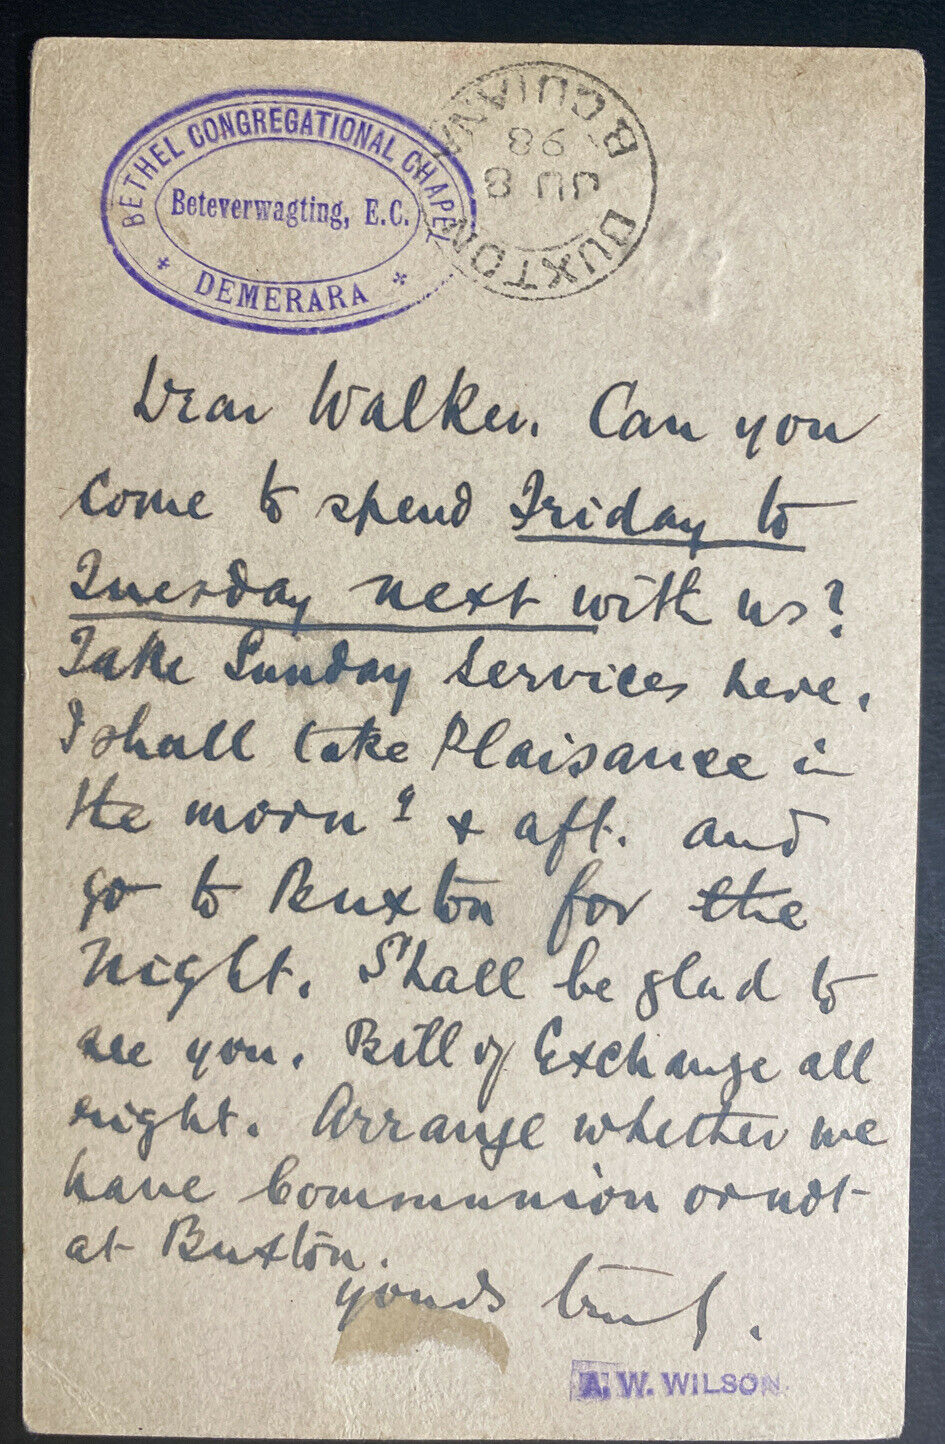 BETHEL CONGREGATIONAL CHAPEL
Beteverwagting, E.C.
* DEMERARA *
BUXTON
JU 8
98
B. GUIANA
Dear Walker. Can you
come to spend Friday to
Tuesday next with us?
Take Sunday Services here.
I shall take Plaisance in
the morng & aft. and
go to Buxton for the
Night. Shall be glad to
see you. Bill of Exchange all
right. Arrange whether we
have Communion or not
at Buxton.
yours truly.
A. W. WILSON.